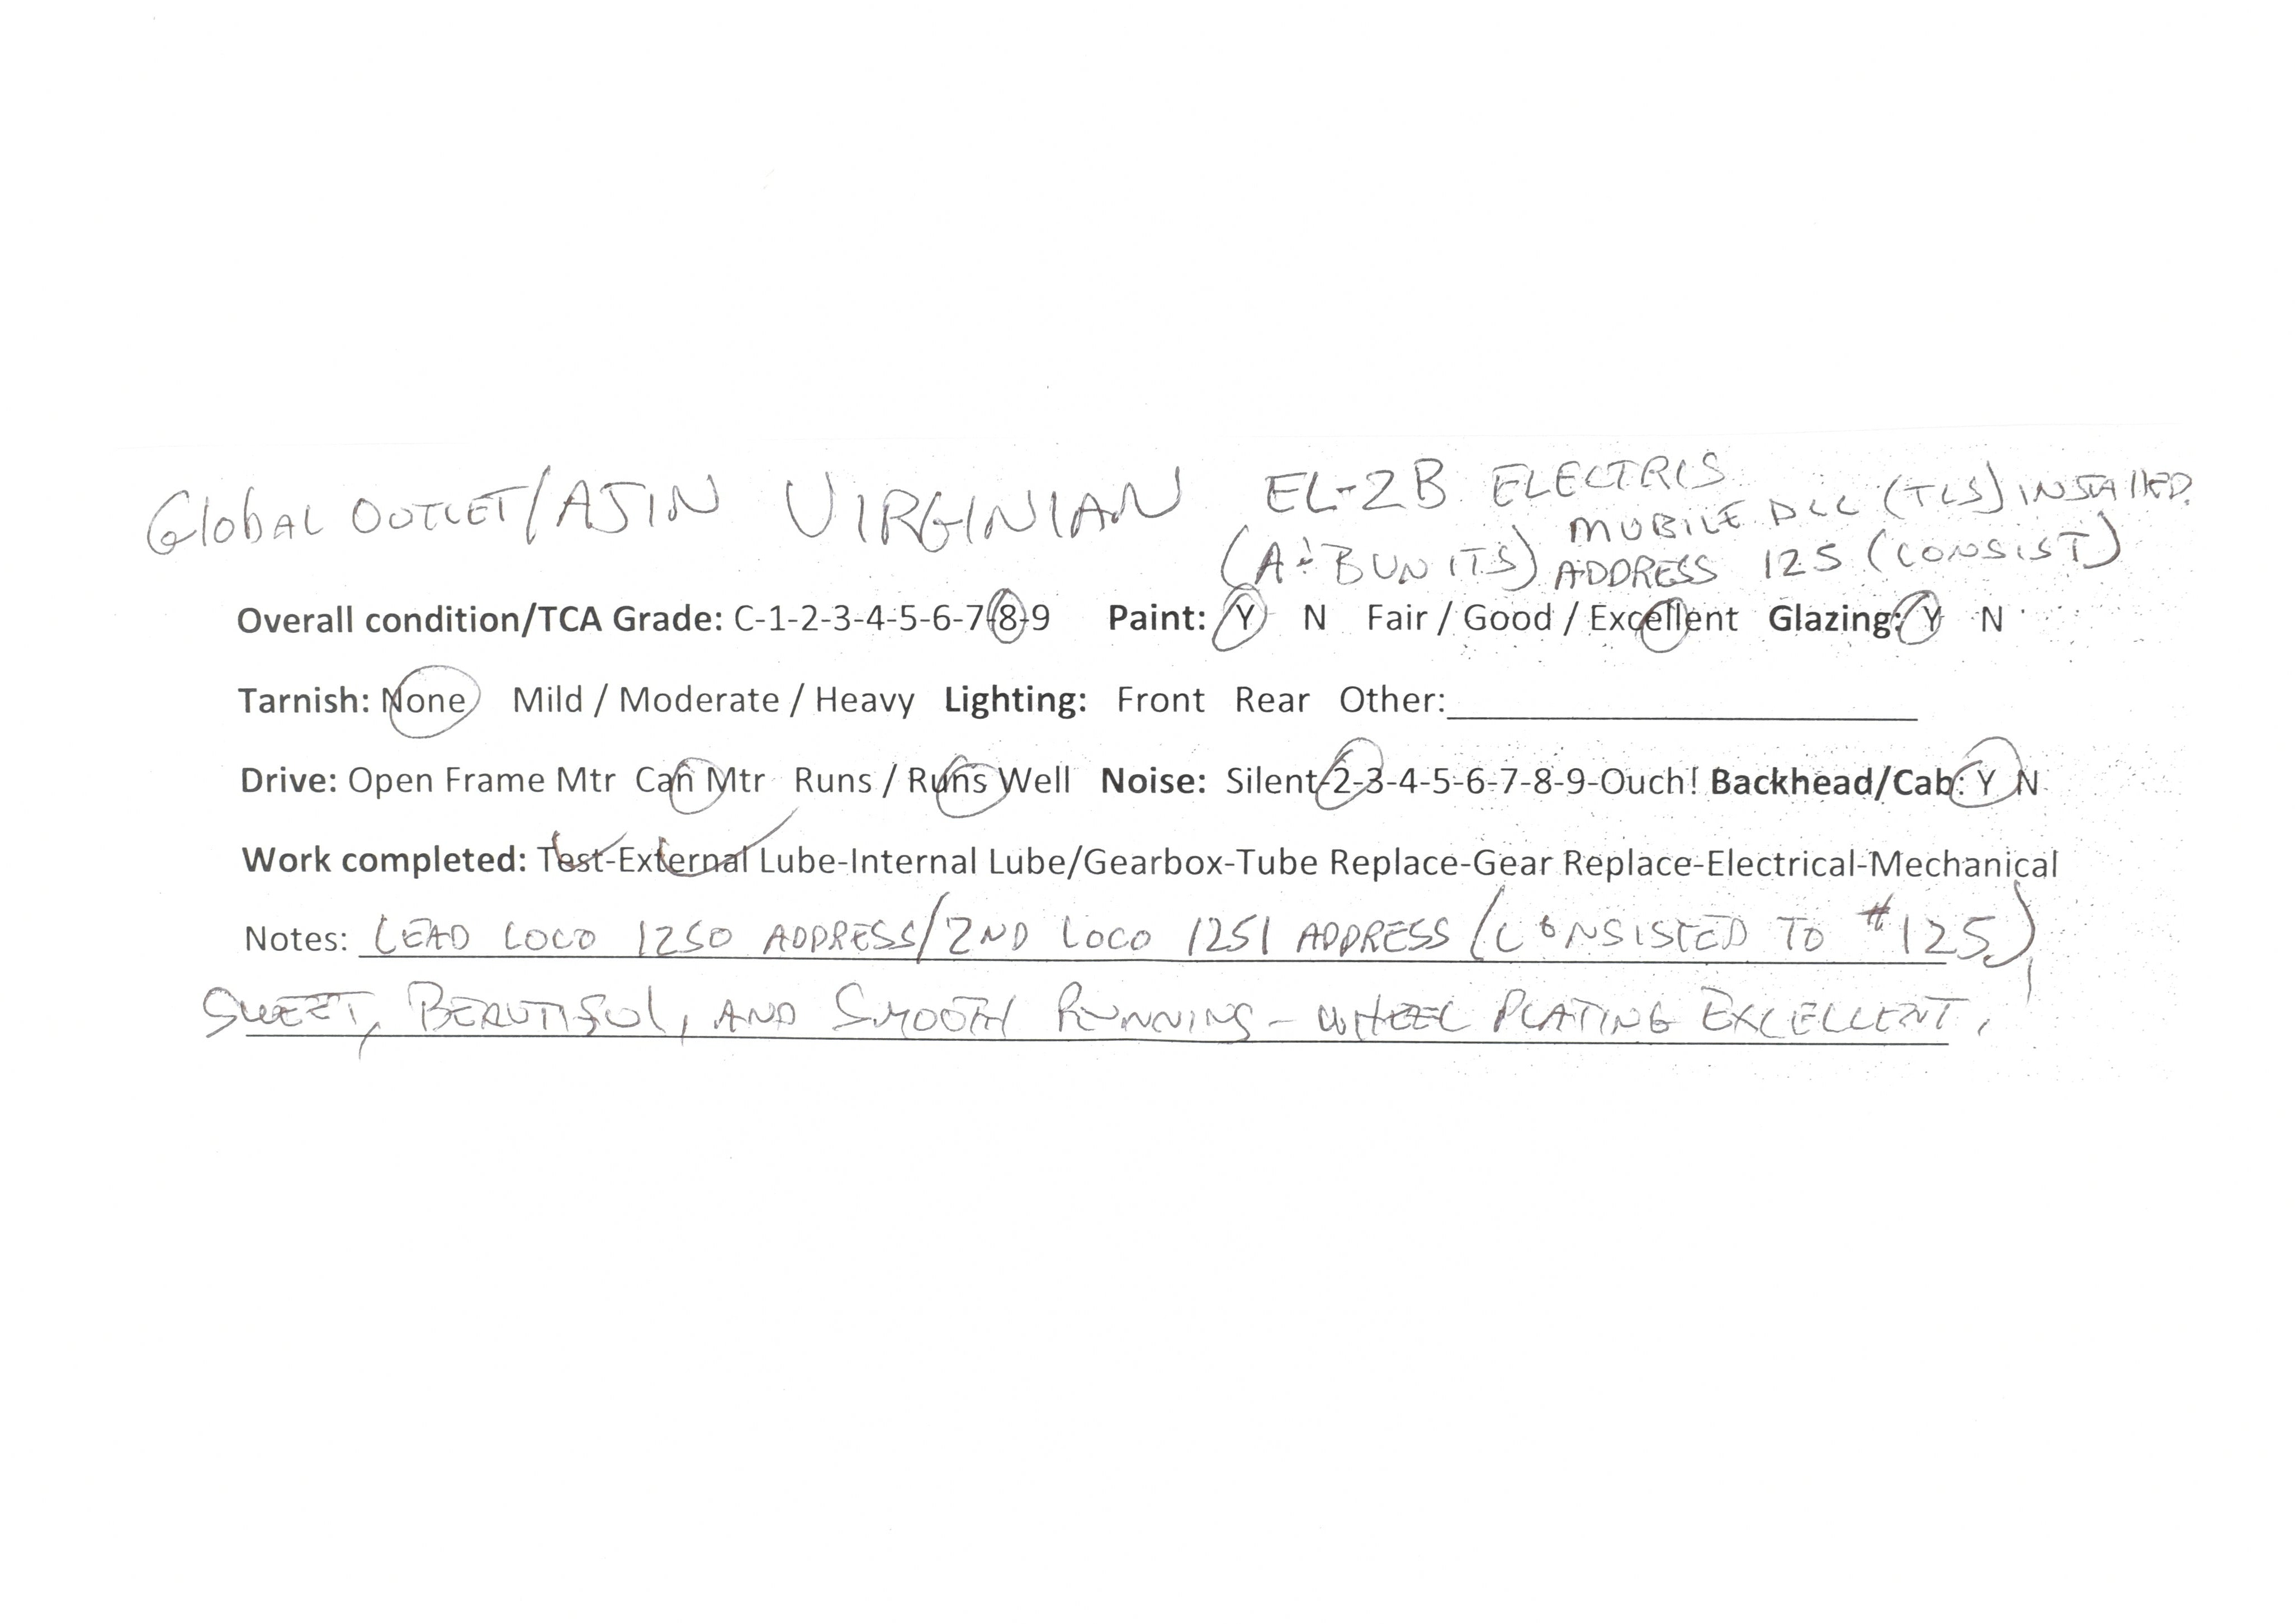 Global OUTLET/AJIN VIRGINIAN EL-2B ELECTRICS
MOBILE DCC (TCS) INSTALLED.
(A & B UNITS) ADDRESS 125 (CONSIST)
Overall condition/TCA Grade: C-1-2-3-4-5-6-7-8-9 Paint: Y N Fair / Good / Excellent Glazing: Y N
Tarnish: None Mild / Moderate / Heavy Lighting: Front Rear Other:
Drive: Open Frame Mtr Can Mtr Runs / Runs Well Noise: Silent-2-3-4-5-6-7-8-9-Ouch! Backhead/Cab: Y N
Work completed: Test-External Lube-Internal Lube/Gearbox-Tube Replace-Gear Replace-Electrical-Mechanical
Notes: LEAD LOCO 1250 ADDRESS/2ND LOCO 1251 ADDRESS (CONSISTED TO #125)
SWEET, BEAUTIFUL, AND SMOOTH RUNNING - WHEEL PLATING EXCELLENT.